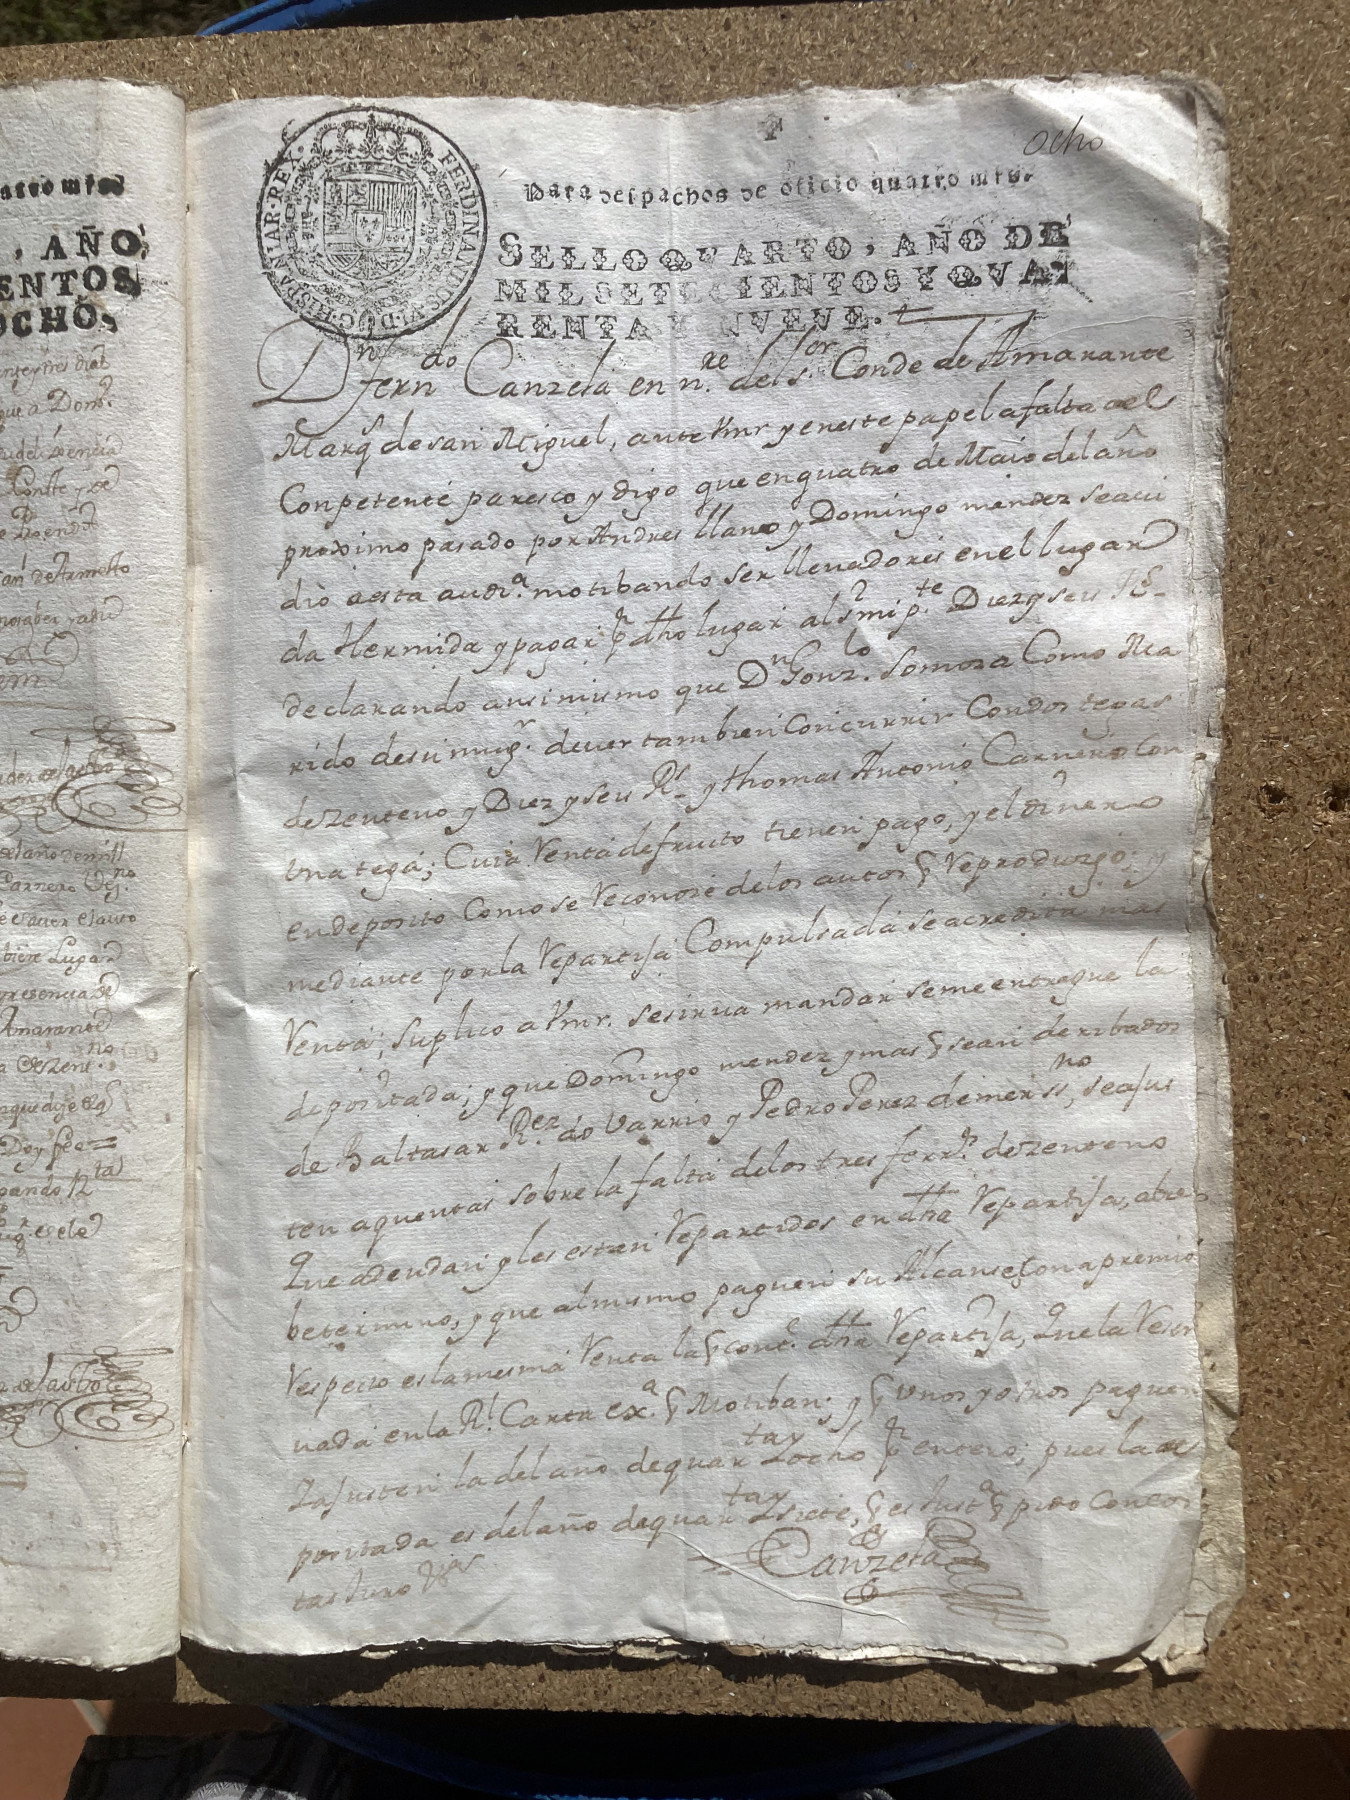 ocho
Para despachos de oficio quatro mrs.
SELLO QVARTO, AÑO DE
MIL SETECIENTOS Y QVA
RENTA Y NVEVE.
FERDINANDUS VI D G HISPANIAR REX
Dn ferndo Canzela en nre. del sor. Conde de Amarante
Marqs de san Miguel, ante Vmr y eneste papel a falta del
Conpetente paresco y digo que en quatro de Maio del año
proximo pasado por Andres llano y Domingo mendez se acu
dio a esta audа. motibando ser lleuadores en el lugar
da Hermida y pagar pr dho lugar al sr mi pte Diez y seis Rs
declarando ansimismo que Dn Gonzlo. Somoza Como Ma
rido de su mugr. deuer tambien Concurrir Con dos tegas
de Zenteno y Diez y seis Rs y thomas Antonio Carnero Con
Una tega; Cuia Venta de fruito tienen pago, y el dinero
en deposito Como se Reconose de los autos q Reproduzgo; y
mediante por la Repartija Compulsada se acredita mas
Renta; suplico a Vmr. se sirua mandar se me entregue la
depositada; y que Domingo mendez y mas q sean deribados
de Baltasar Rez. do Varrio y Pedro Perez de mer ssno, se ajus
ten a quentas sobre la falta de los tres ferrs. de zenteno
Que adeudan y les estan Repartidos en dha Repartija, a bre
be termino, y que al mismo paguen su Alcanse, Con apremio
Respecto es la mesma Renta la q cone. dha Repartija, Que la Reser
uada en la Rl Carta exa. q Motiban; y q Unos y otros paguen
Y ajusten la del año de quartay ocho pr entero; pues la de
positada es del año de quartay siete, q es Justa q pido Con cos
tas Juro Vas
Canzela
atro mrs
, AÑO
ENTOS
OCHO,
que a Dom.
de Armesto
del año de mill
Carnero
biere Lugar
presencia
Amarante
Doy fee